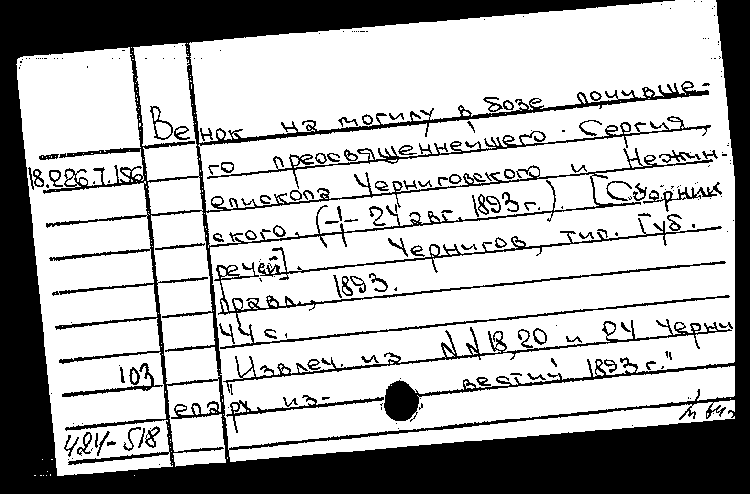 Венок на могилу в бозе почивше-
18.226.7.156 го преосвященнейшего Сергия,
епископа Черниговского и Нежин-
ского. († 24 авг. 1893 г.). [Сборник
речей]. Чернигов, тип. Губ.
правл., 1893.
44 с.
103 Извлеч. из NN 18, 20 и 24 Черни
епарх. из- вестий 1893 г."
424-518